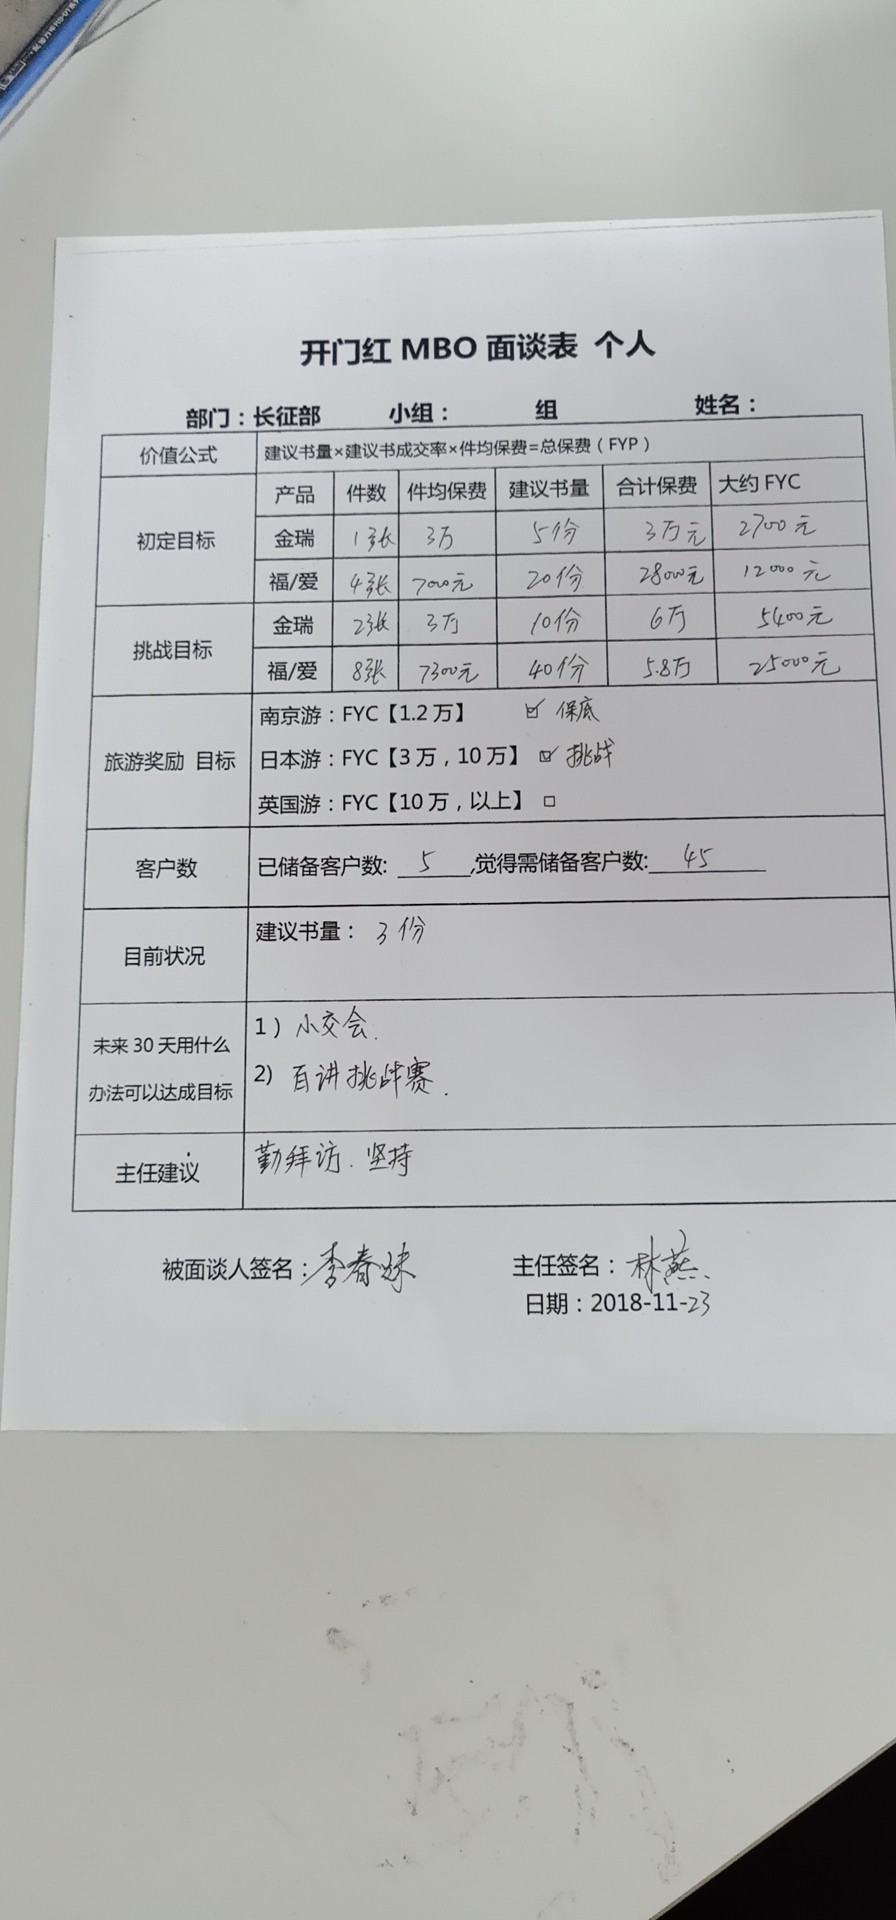 开门红 MBO 面谈表 个人
部门：长征部 小组： 组 姓名：
价值公式 建议书量×建议书成交率×件均保费=总保费（FYP）
产品 件数 件均保费 建议书量 合计保费 大约 FYC
初定目标
金瑞 1张 3万 5份 3万元 2700元
福/爱 4张 7000元 20份 28000元 12000元
挑战目标
金瑞 2张 3万 10份 6万 5400元
福/爱 8张 7300元 40份 5.8万 25000元
南京游：FYC【1.2 万】 ☑ 保底
旅游奖励 目标 日本游：FYC【3 万，10 万】 ☑ 挑战
英国游：FYC【10 万，以上】 □
客户数 已储备客户数: 5 ,觉得需储备客户数: 45
建议书量： 3份
目前状况
1）小交会.
未来 30 天用什么
办法可以达成目标
2) 百讲挑战赛.
主任建议 勤拜访.坚持
被面谈人签名：李春妹 主任签名：林燕
日期：2018-11-23